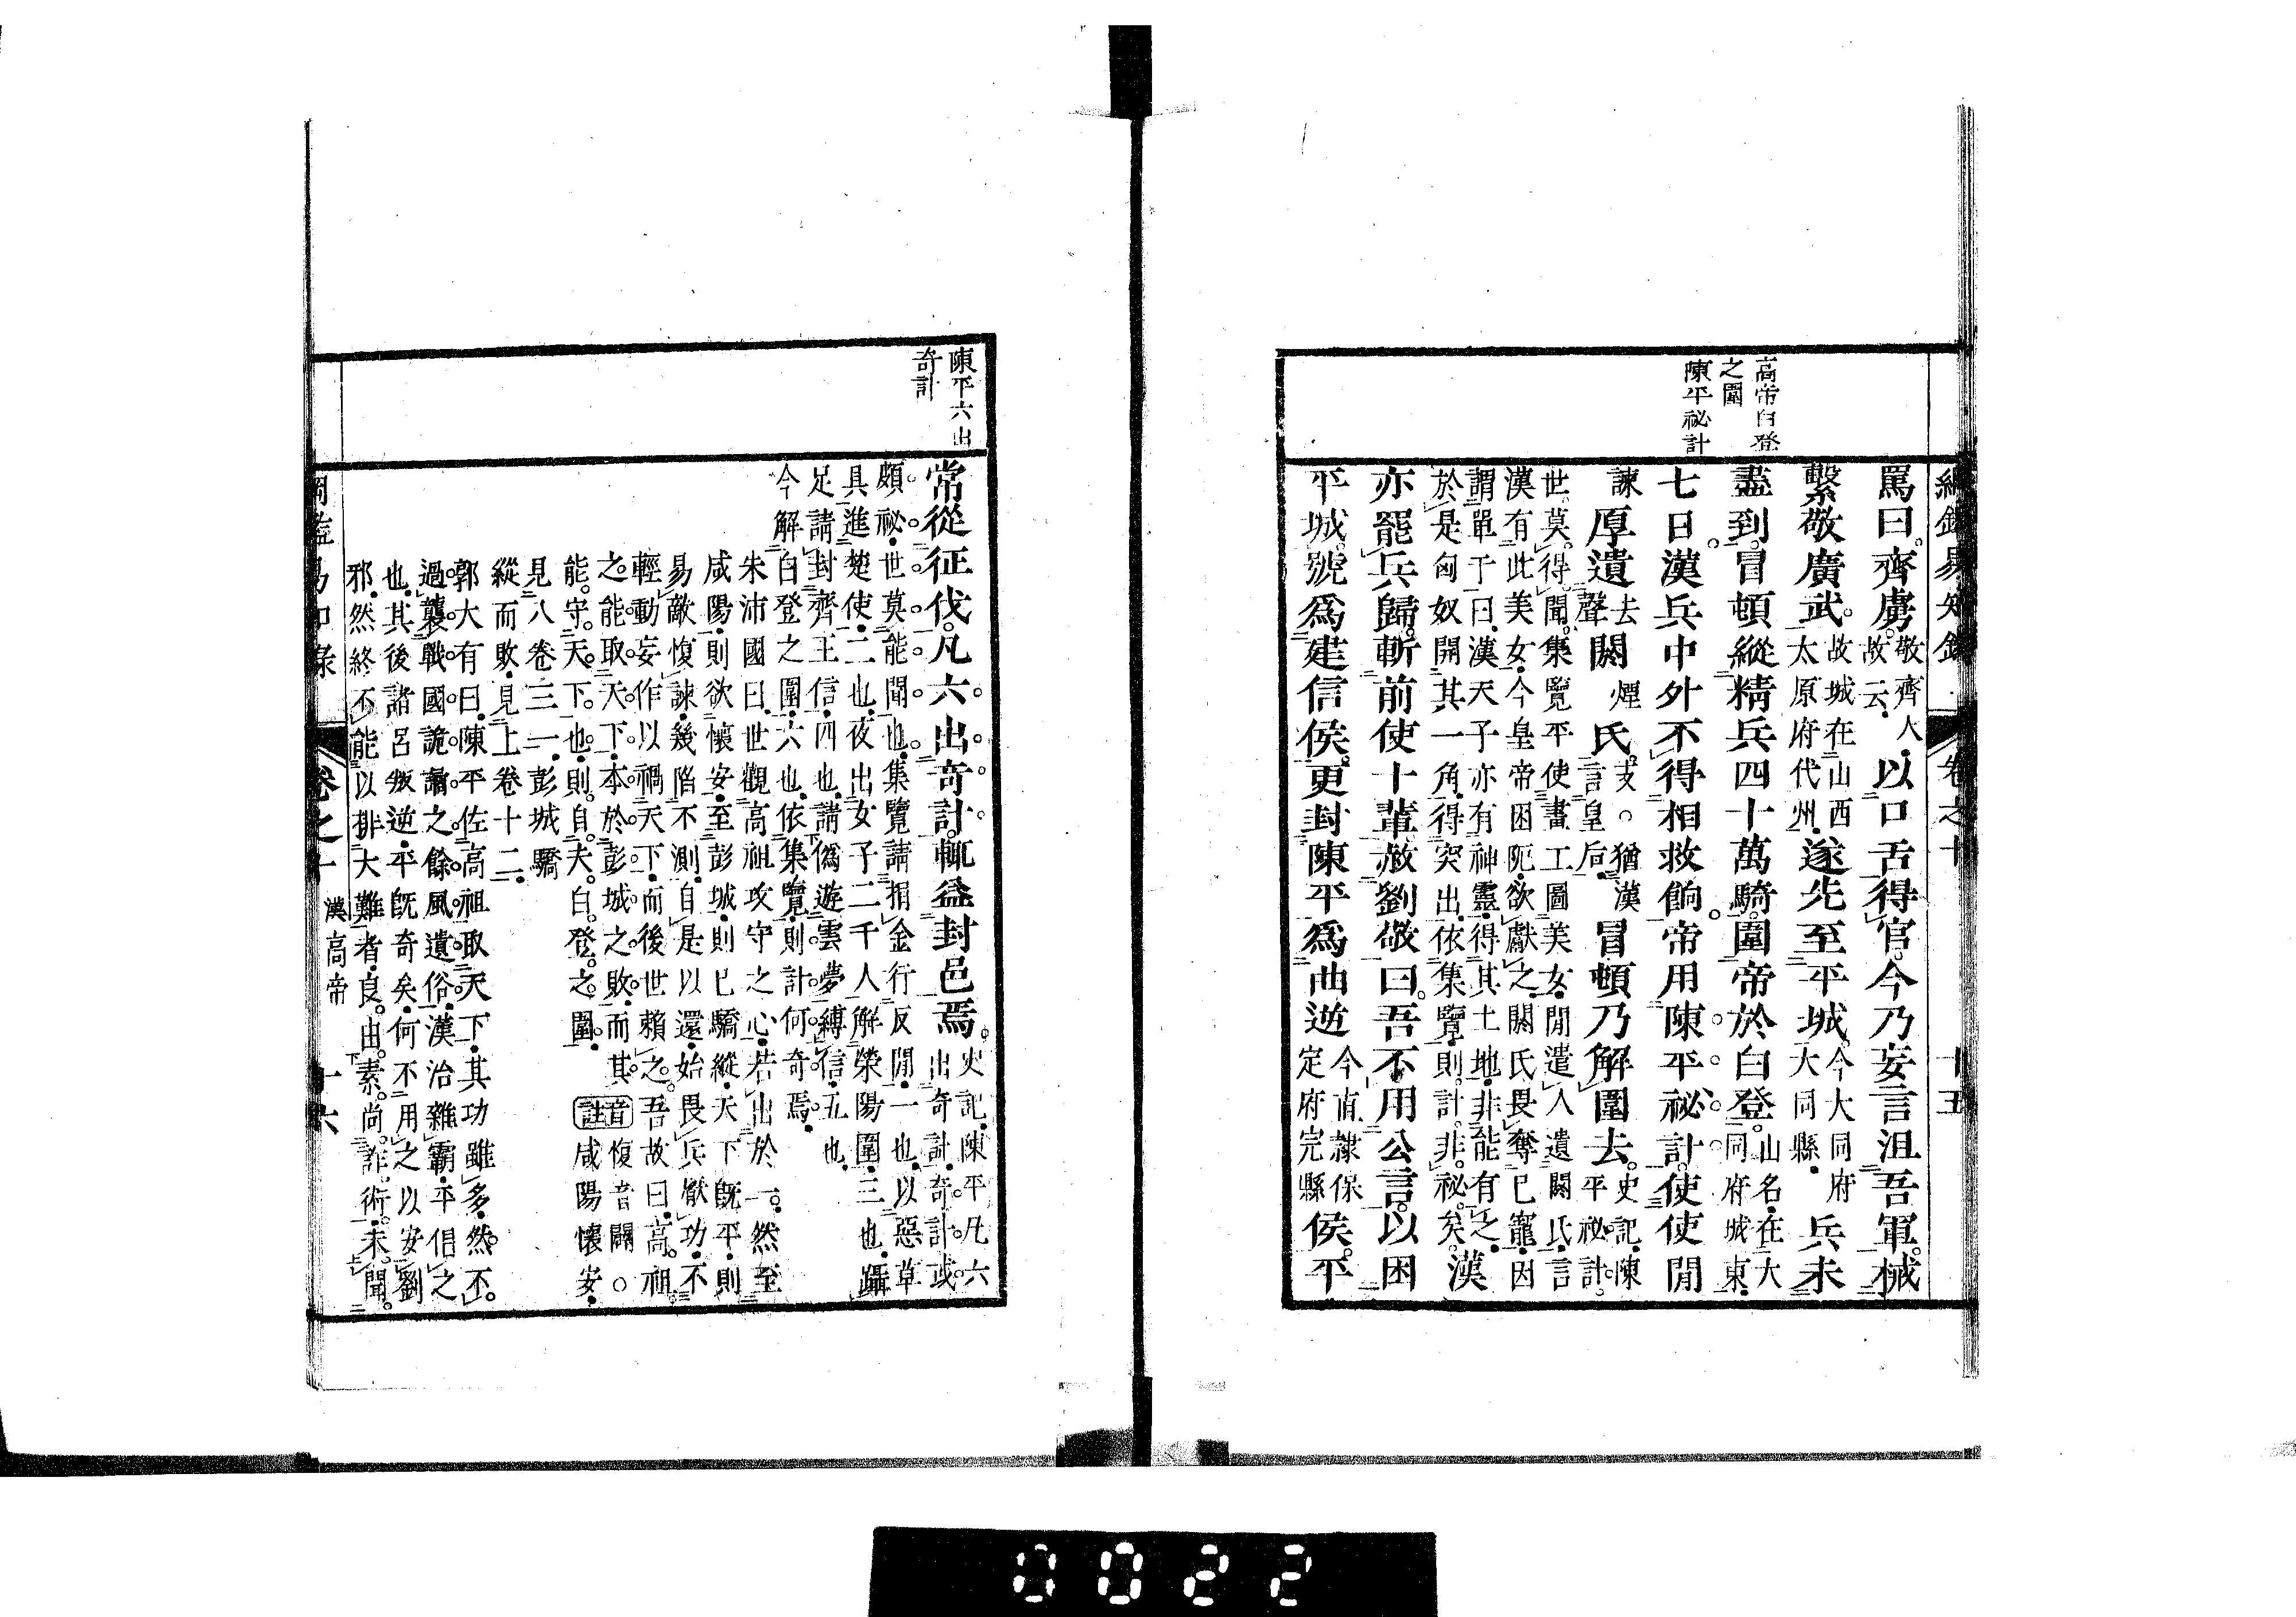 綱鑑易知錄 卷之十 十五
高帝白登
之圍
陳平祕計
罵曰齊虜敬齊人故云以口舌得官今乃妄言沮吾軍械
繫敬廣武故城在山西太原府代州遂先至平城今大同府大同縣兵未
盡到冒頓縱精兵四十萬騎圍帝於白登山名在大同府城東
七日漢兵中外不得相救餉帝用陳平祕計使使閒
諫厚遺去聲閼煙氏支○猶漢言皇后冒頓乃解圍去史記陳平祕計
世莫得聞集覽平使畫工圖美女閒遣人遺閼氏言
漢有此美女今皇帝困阨欲獻之閼氏畏奪已寵因
謂單于曰漢天子亦有神靈得其土地非能有之
於是匈奴開其一角得突出依集覽則計非祕矣漢
亦罷兵歸斬前使十輩赦劉敬曰吾不用公言以困
平城號爲建信侯更封陳平爲曲逆今直隸保定府完縣侯平
陳平六出
奇計
常從征伐凡六出奇計輒益封邑焉史記陳平凡六出奇計奇計或
頗祕世莫能聞也集覽請捐金行反閒一也以惡草
具進楚使二也夜出女子二千人解滎陽圍三也躡
足請封齊王信四也請僞遊雲夢縛信五也
今解白登之圍六也依集覽則計何奇焉
朱沛國曰世觀高祖攻守之心若出於一然至
咸陽則欲懷安至彭城則已驕縱天下既平則
易敵愎諫幾陷不測自是以還始畏兵獄功不
輕動妄作以禍天下而後世賴之吾故曰高祖
之能取天下本於彭城之敗而其
能守天下也則自夫白登之圍音註愎音闢○咸陽懷安
見八卷三一彭城驕
縱而敗見上卷十二
郭大有曰陳平佐高祖取天下其功雖多然不
過襲戰國詭譎之餘風遺俗漢治雜霸平倡之
也其後諸呂叛逆平旣奇矣何不用之以安劉
邪然終不能以排大難者良由素尚詐術未聞
綱鑑易知錄 卷之十 漢高帝 十六
0022